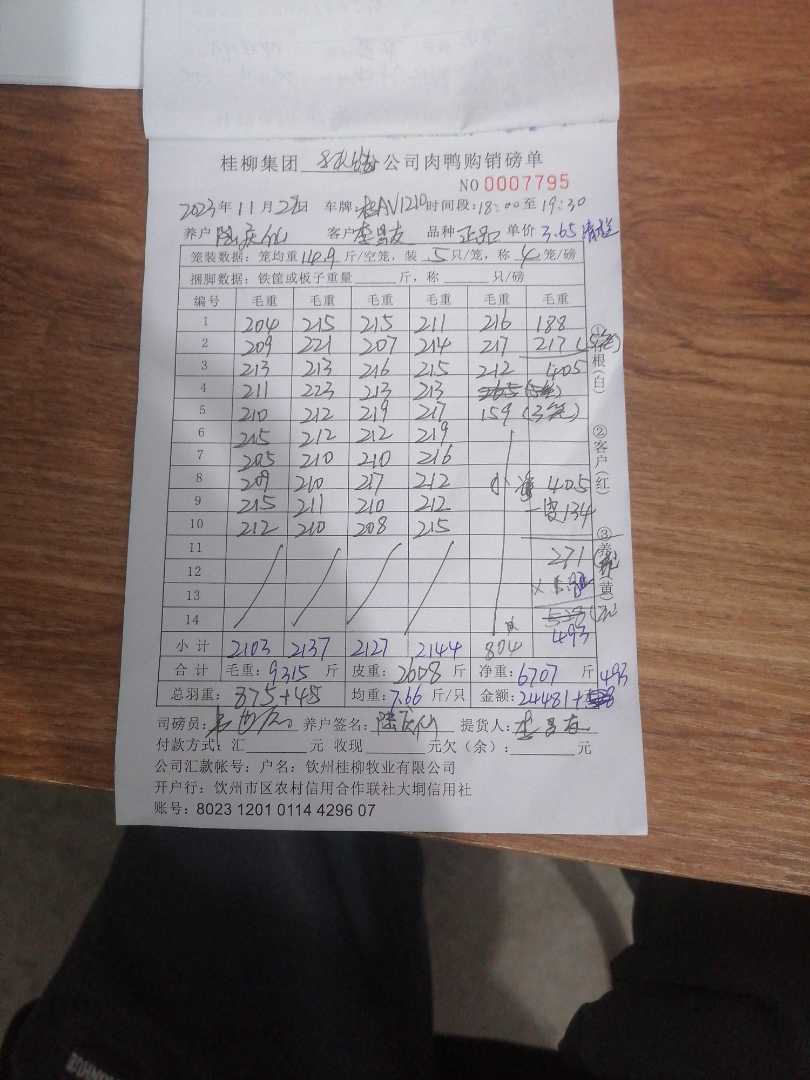 桂柳集团 公司肉鸭购销磅单
NO 0007795
2023年11月27日 车牌:桂AV1210 时间段:18:00至19:30
养户 陆庆仙 客户 李昌友 品种 正品 单价 3.65
笼装数据:笼均重14.9斤/空笼,装5只/笼,称4笼/磅
捆脚数据:铁筐或板子重量 斤,称 只/磅
编号 毛重 毛重 毛重 毛重 毛重 毛重
1 204 215 215 211 216 188
2 209 221 207 214 217 217
3 213 213 216 215 212 405
4 211 223 213 213
5 210 212 219 217 159 (3笼)
6 215 212 212 219
7 205 210 210 216
8 209 210 217 212 405
9 215 211 210 212 134
10 212 210 208 215
11 271
12
13
14 493
小计 2103 2137 2127 2144 804
合计 毛重:9315斤 皮重:2608斤 净重:6707斤 493
总羽重:875+45 均重:7.66斤/只 金额:24481+
司磅员: 养户签名:陆庆仙 提货人:李昌友
付款方式:汇 元 收现 元欠(余): 元
公司汇款帐号:户名:钦州桂柳牧业有限公司
开户行:钦州市区农村信用合作联社大垌信用社
账号:8023 1201 0114 4296 07
①存根(白)
②客户(红)
③养 黄)